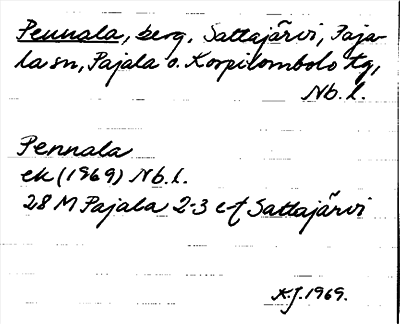 Pennala, berg, Sattajärvi, Paja-
la sn, Pajala o. Korpilombolo tg,
Nb. l.
Pennala
ek (1969) Nb. l.
28 M Pajala 2-3 e-f Sattajärvi
K.J. 1969.